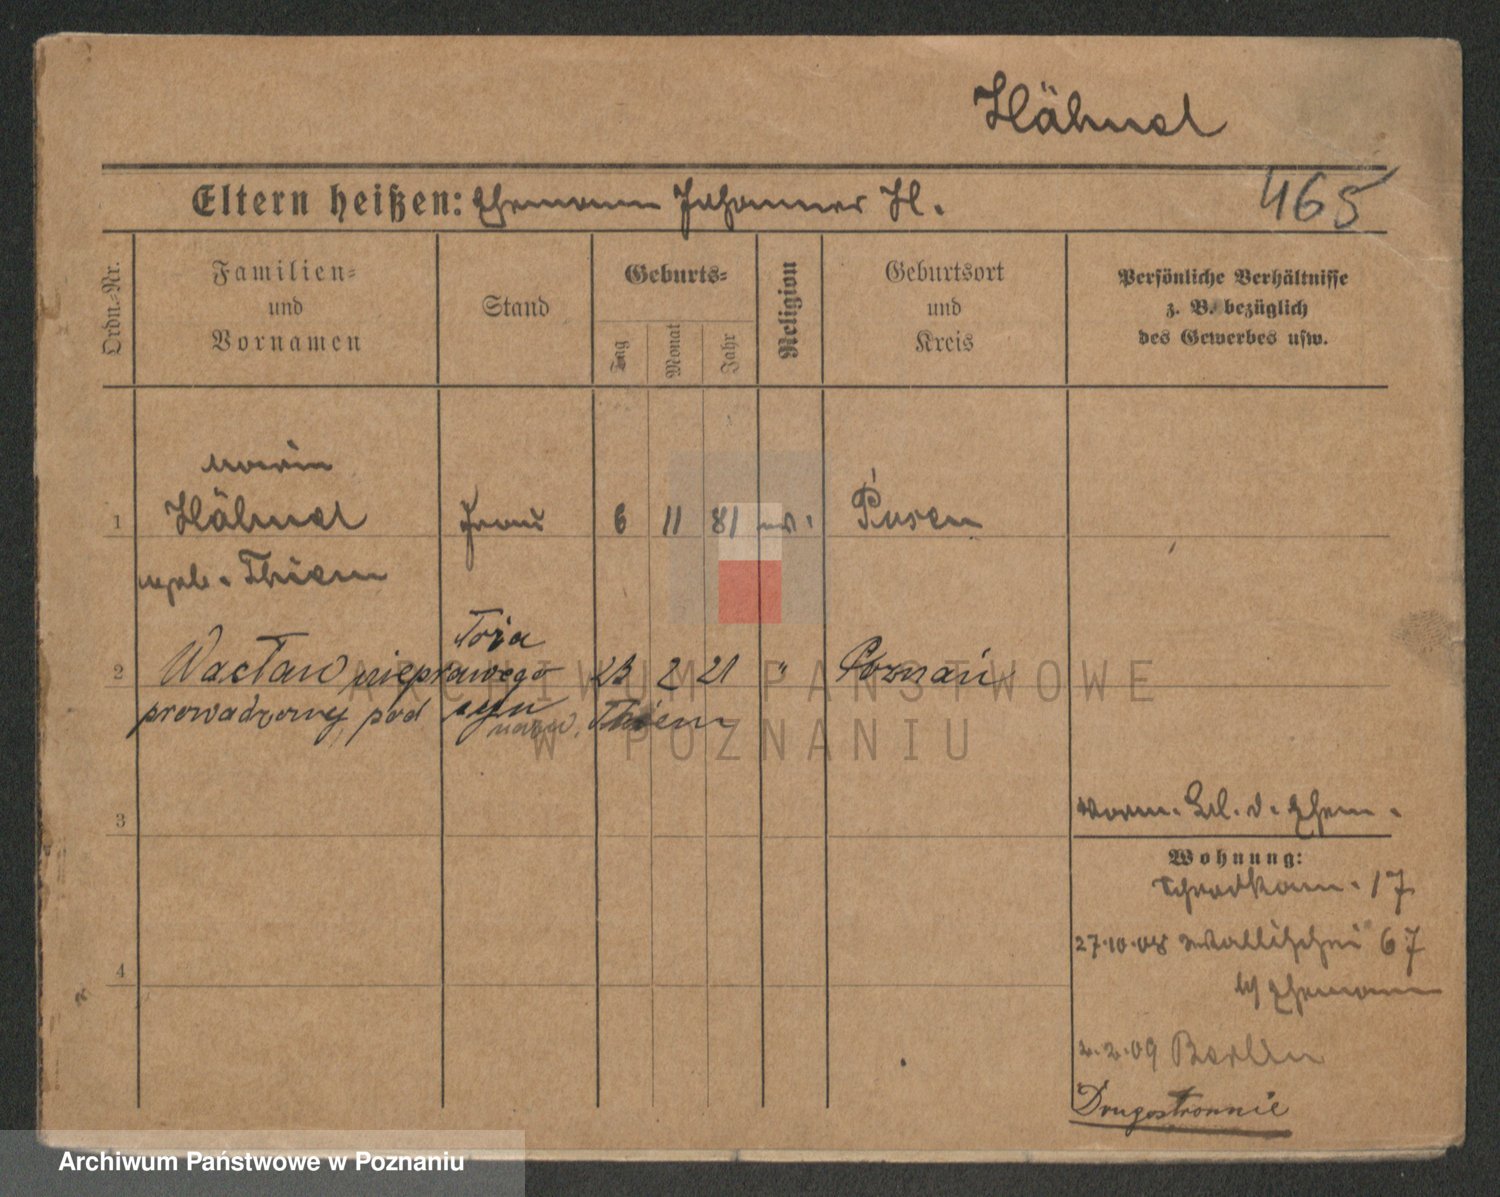 Hähnel
465
Eltern heißen: Ehemann Johannes H.
Ordn.-Nr.
Familien-
und
Vornamen
Stand
Geburts-
Tag
Monat
Jahr
Religion
Geburtsort
und
Kreis
Persönliche Verhältnisse
z. B. bezüglich
des Gewerbes usw.
Maria
1 Hähnel Frau 6 11 81 Posen
geb. Thiem
2 Wacław nieprawego łoża 23 2 21 " Poznań
prowadzony pod syn nazw. Thiem
3
vorm. d. Ehem.
Wohnung:
17
27.10.08 Wallischei 67
b/ Ehemann
4
2.2.09 Berlin
Drugostronnie
ARCHIWUM PAŃSTWOWE
W POZNANIU
Archiwum Państwowe w Poznaniu